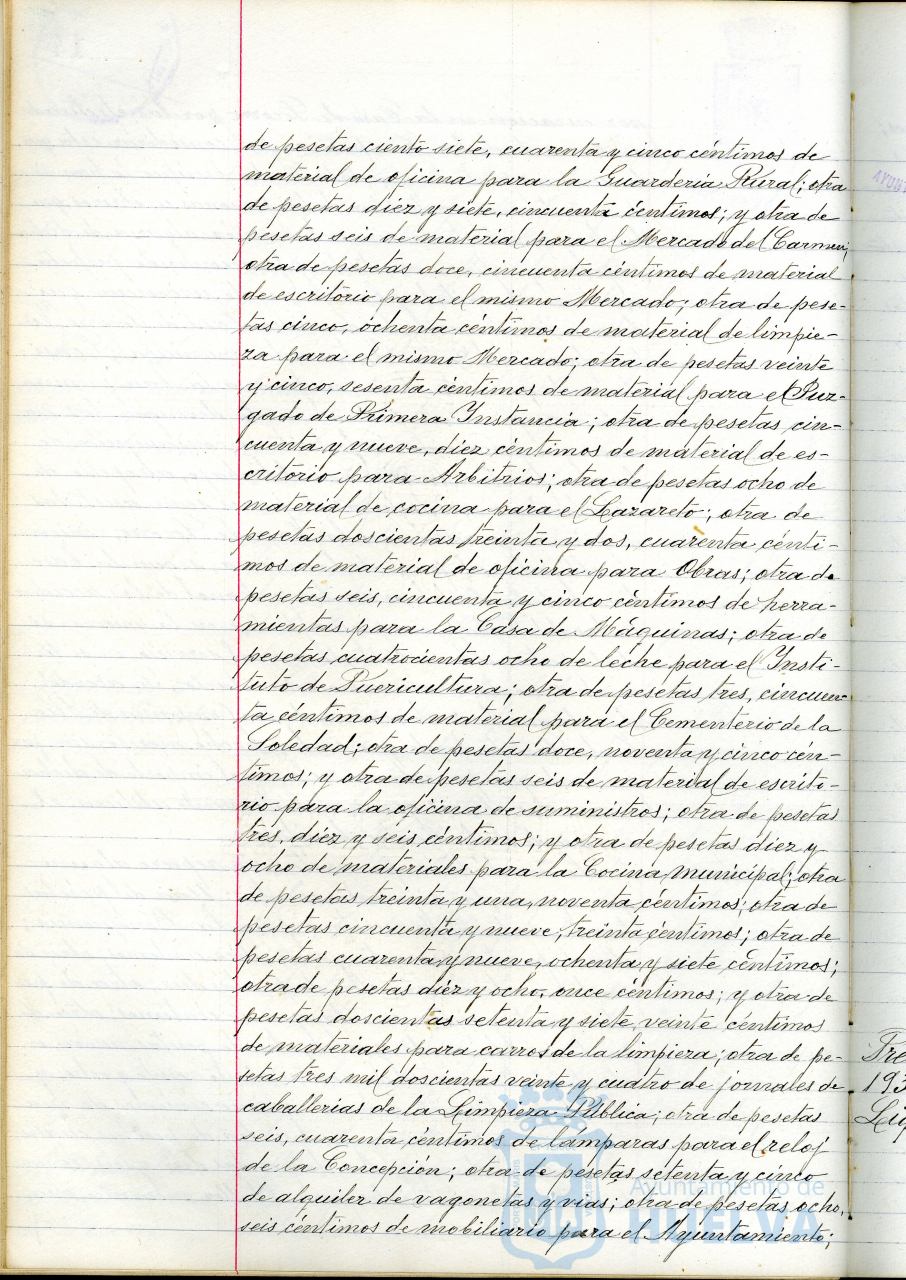 de pesetas ciento siete, cuarenta y cinco céntimos de
material de oficina para la Guardería Rural; otra
de pesetas diéz y siete, cincuenta céntimos; y otra de
pesetas seis de material para el Mercado del Carmen;
otra de pesetas doce, cincuenta céntimos de material
de escritorio para el mismo Mercado; otra de pese-
tas cinco, ochenta céntimos de material de limpie-
za para el mismo Mercado; otra de pesetas veinte
y cinco, sesenta céntimos de material para el Juz-
gado de Primera Instancia; otra de pesetas cin-
cuenta y nueve, diéz céntimos de material de es-
critorio para Arbitrios; otra de pesetas ocho de
material de cocina para el Lazareto; otra de
pesetas doscientas treinta y dos, cuarenta cénti-
mos de material de oficina para Obras; otra de
pesetas seis, cincuenta y cinco céntimos de herra-
mientas para la Casa de Máquinas; otra de
pesetas cuatrocientas ocho de leche para el Insti-
tuto de Puericultura; otra de pesetas tres, cincuen-
ta céntimos de material para el Cementerio de la
Soledad; otra de pesetas doce, noventa y cinco cén-
timos; y otra de pesetas seis de material de escrito-
rio para la oficina de suministros; otra de pesetas
tres, diéz y seis céntimos; y otra de pesetas diéz y
ocho de materiales para la Cocina municipal; otra
de pesetas treinta y una, noventa céntimos; otra de
pesetas cincuenta y nueve, treinta céntimos; otra de
pesetas cuarenta y nueve, ochenta y siete céntimos;
otra de pesetas diéz y ocho, once céntimos; y otra de
pesetas doscientas setenta y siete, veinte céntimos
de materiales para carros de la limpieza; otra de pe-
setas tres mil doscientas veinte y cuatro de jornales de
caballerías de la Limpieza Pública; otra de pesetas
seis, cuarenta céntimos de lámparas para el reloj
de la Concepción; otra de pesetas setenta y cinco
de alquiler de vagonetas y vías; otra de pesetas ocho,
seis céntimos de mobiliario para el Ayuntamiento;
Ayuntamiento de
HUELVA